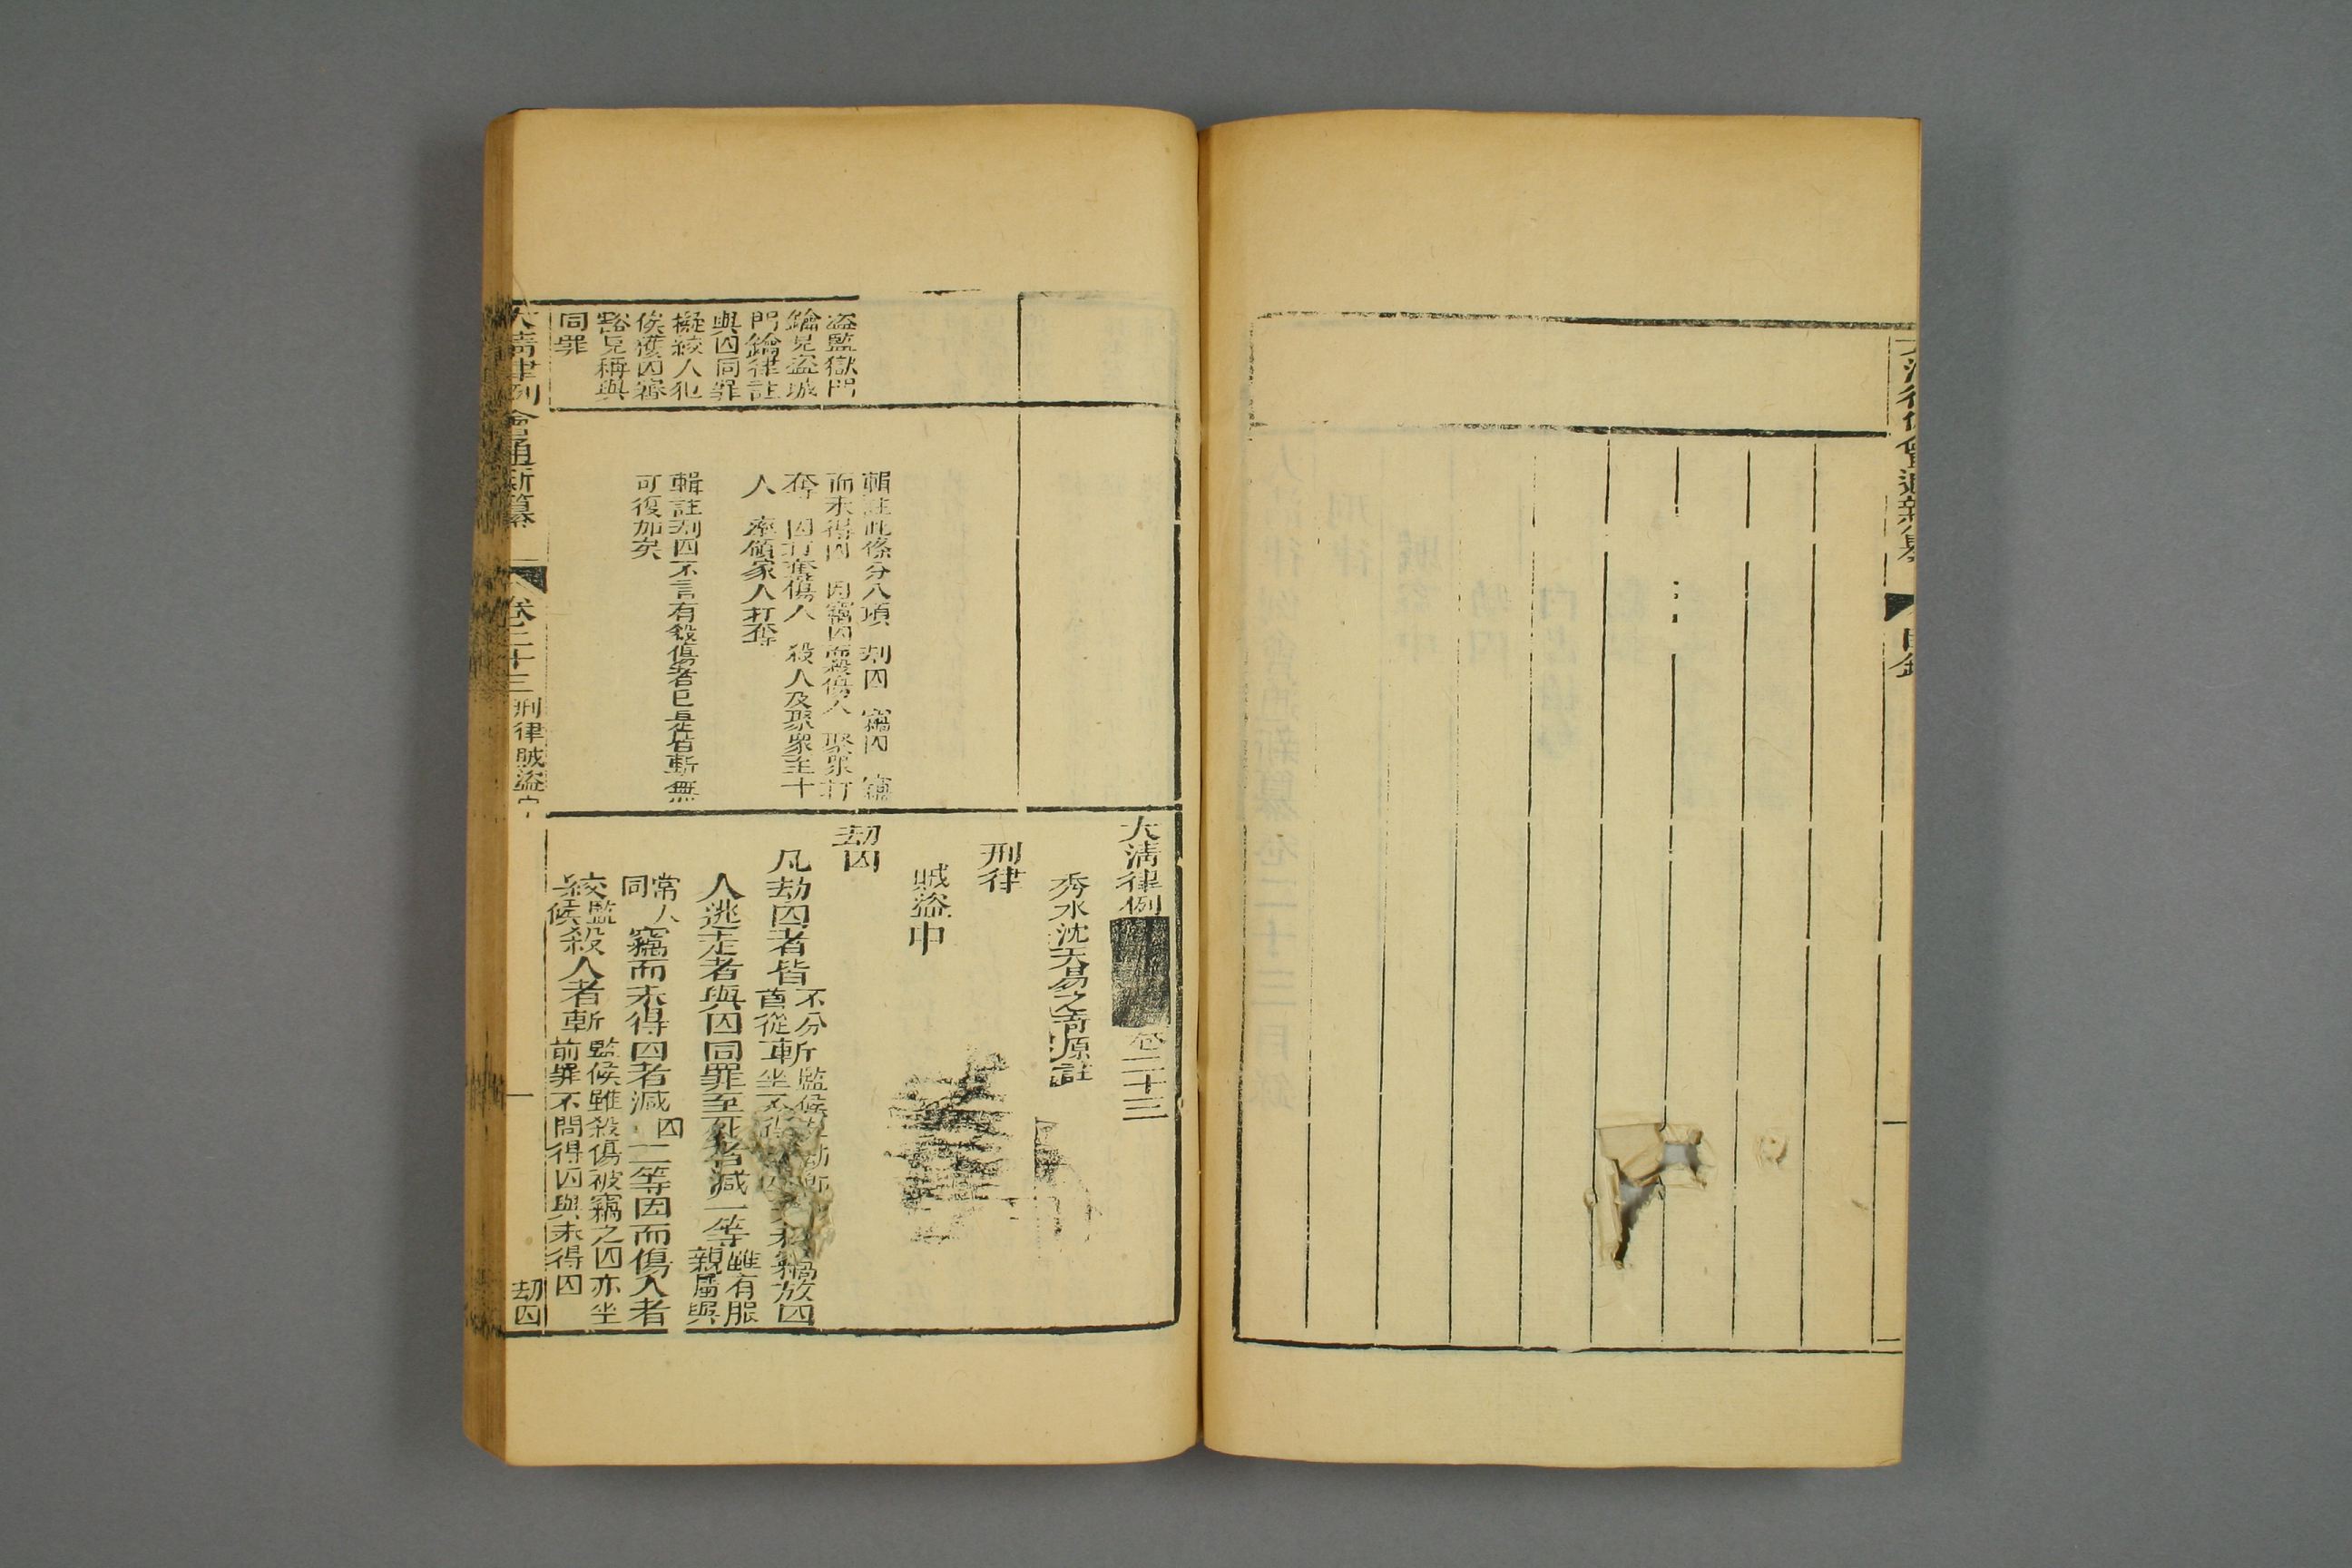 目錄
大清律例
卷二十三
秀水沈天易之奇原註
刑律
賊盜中
劫囚
凡劫囚者皆
不分
首從
斬
監候
坐不
竊放囚
人逃走者與囚同罪至死者減一等
雖有服
親屬與
常人
同
竊而未得囚者減
囚
二等因而傷人者
絞
監
候
殺人者斬
監候雖殺傷被竊之囚亦坐
前罪不問得囚與未得囚
盜監獄門
鑰見盜城
門鑰律註
與囚同罪
擬絞人犯
俟獲囚審
豁見稱與
同罪
輯註此條分八項 劫囚 竊囚 竊
而未得囚 因竊囚而殺傷人 聚眾打
奪 因打奪傷人 殺人及聚眾至十
人 率領家人打奪
輯註劫囚不言有殺傷者已是皆斬無
可復加矣
大清律例會通新纂
卷二十三
刑律賊盜中
一
劫囚